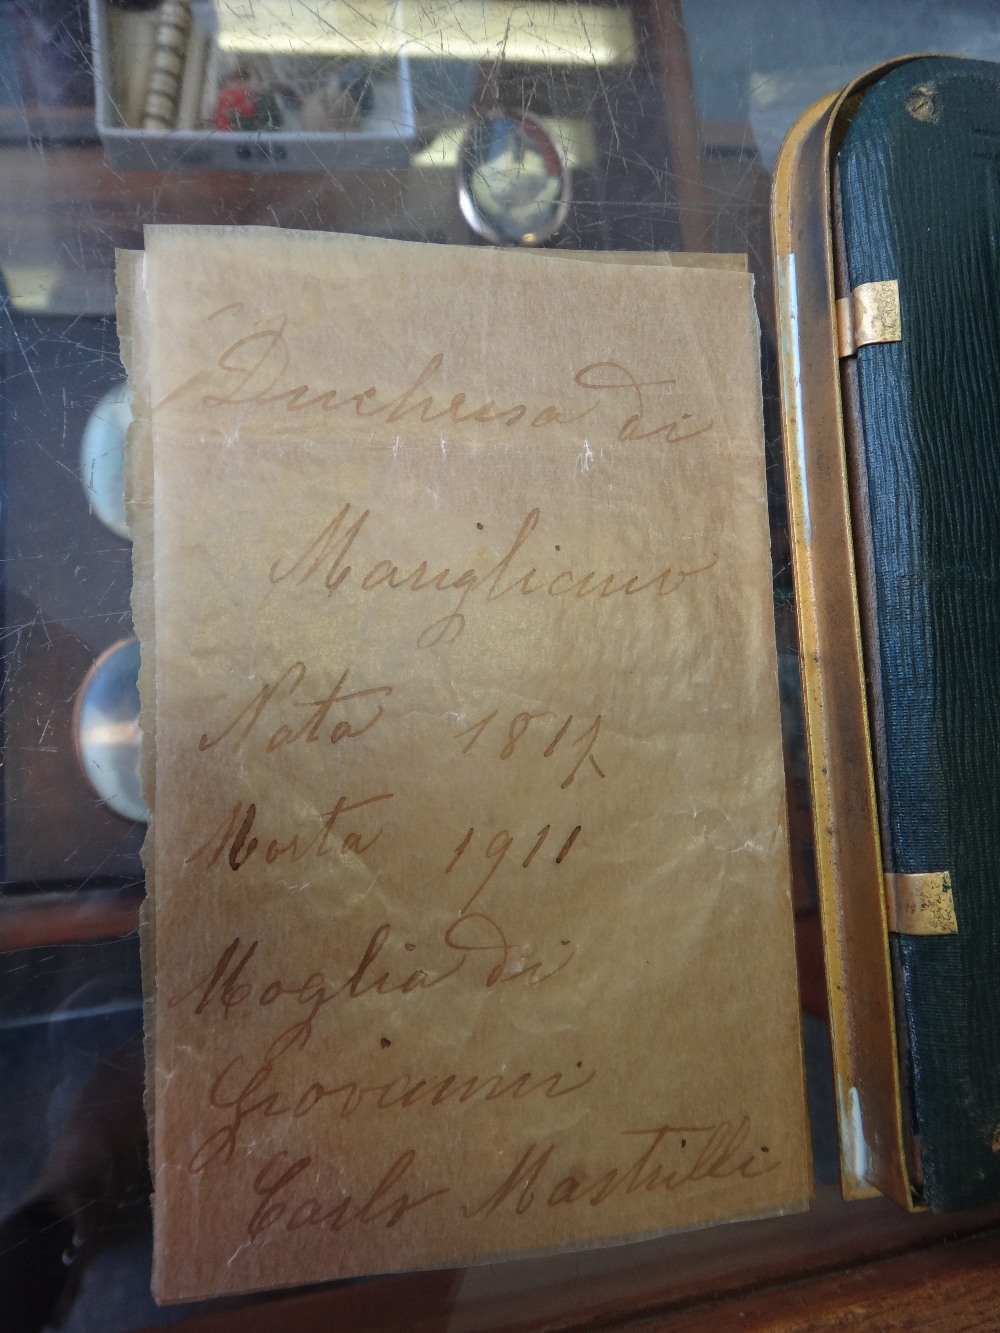 Duchessa di
Marigliano
Nata 1817
Morta 1911
Moglia di
Giovanni
Carlo Mastrilli